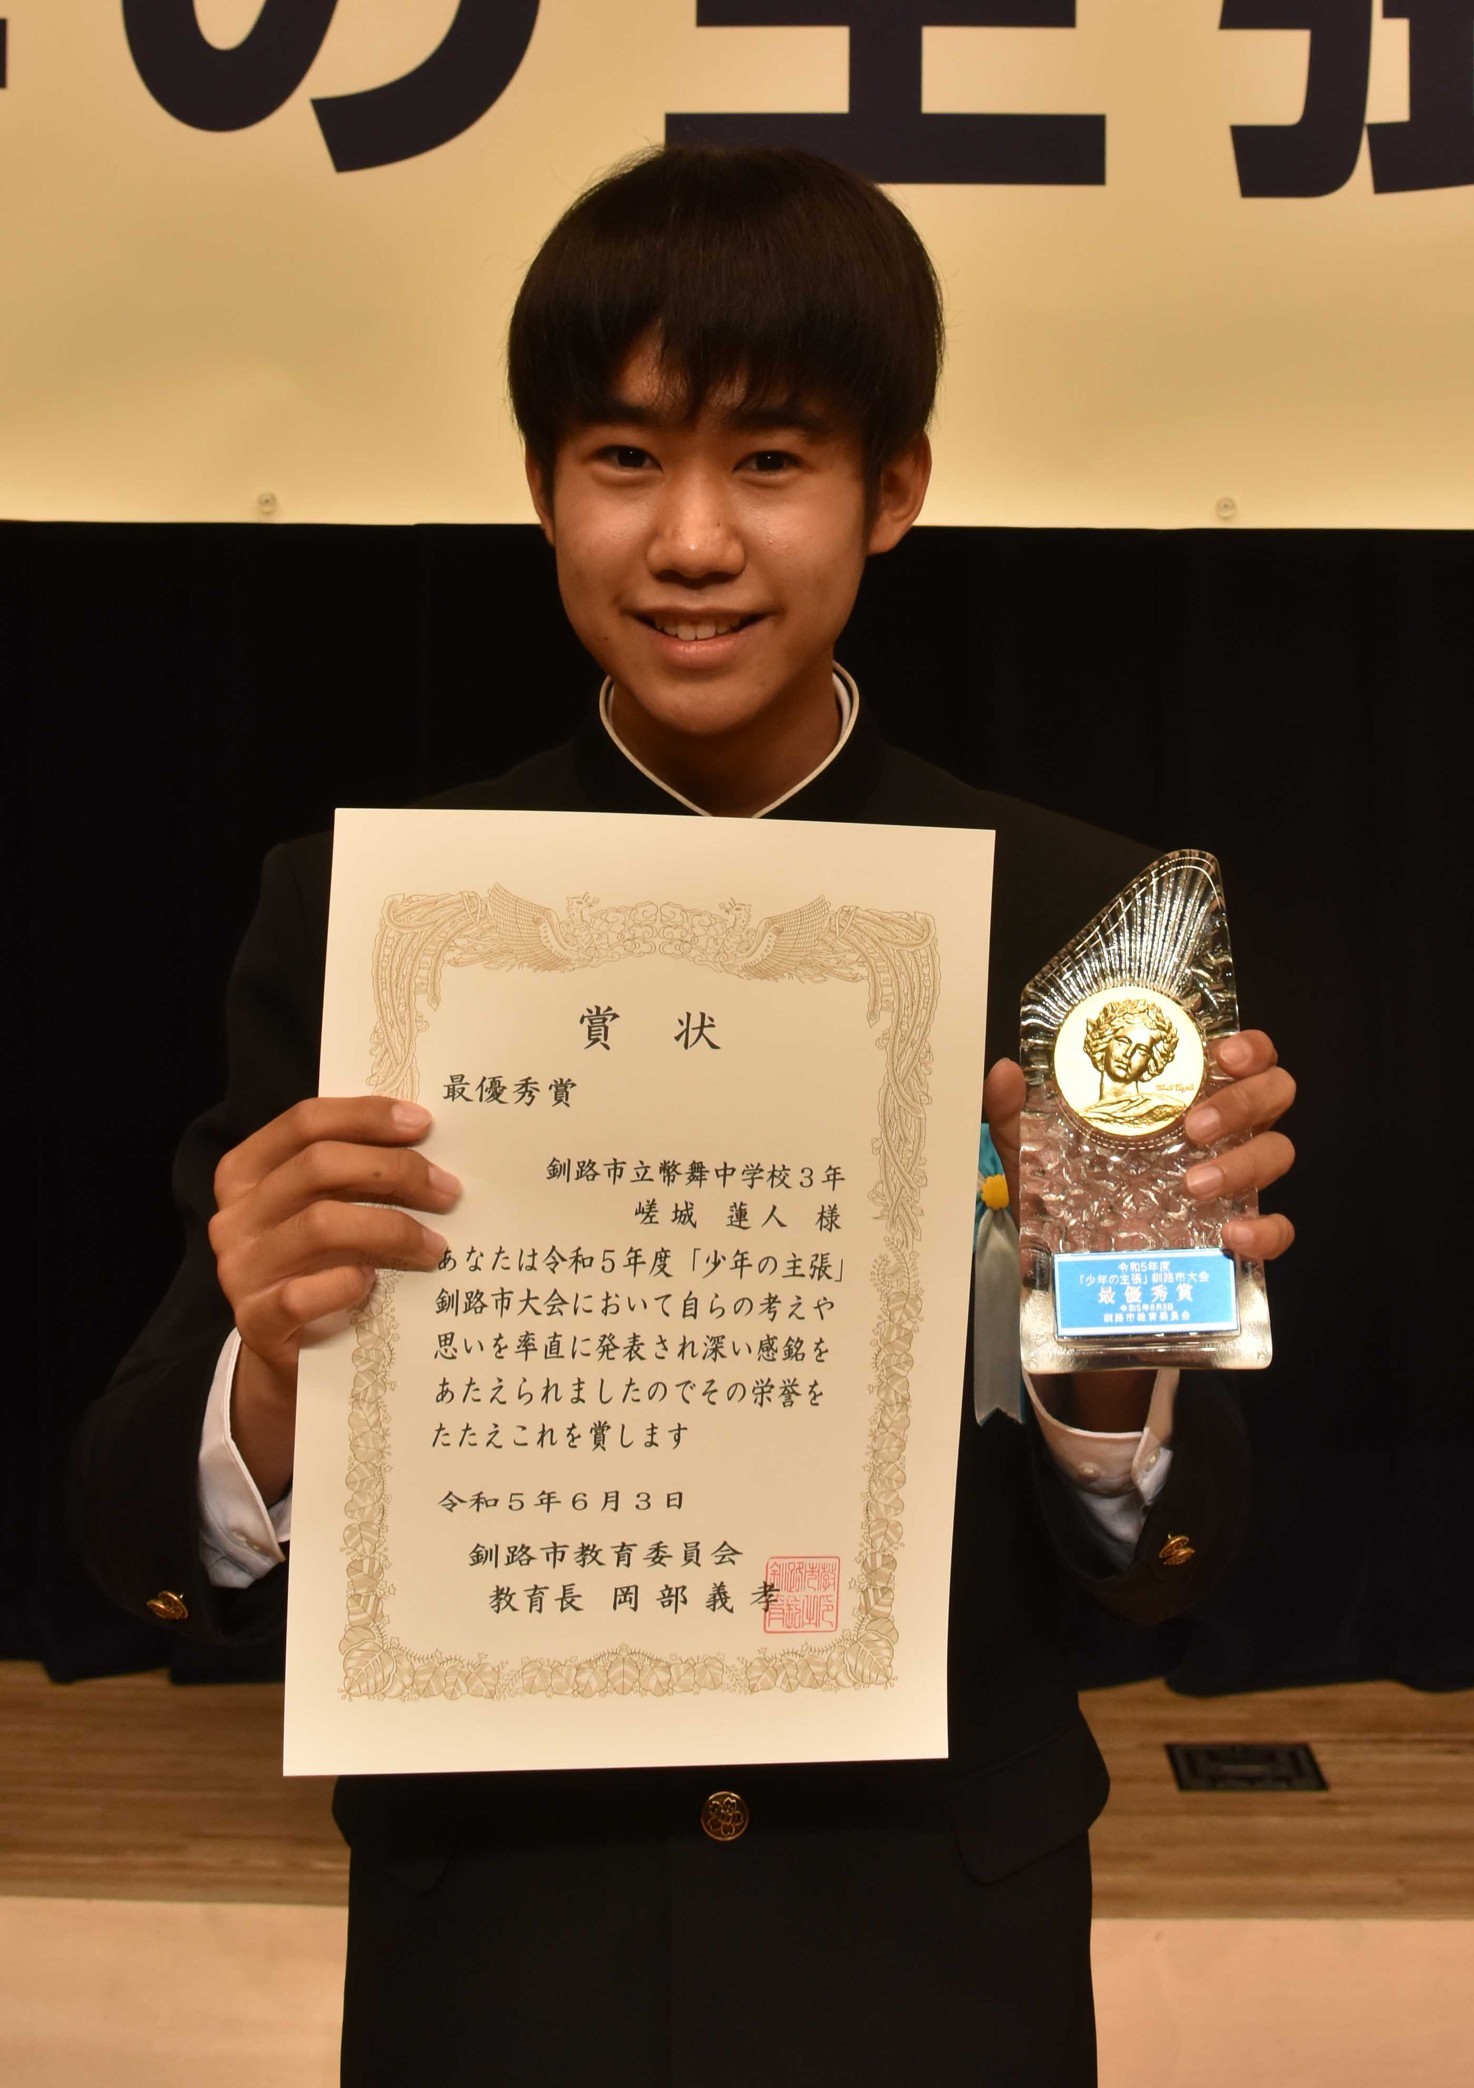 の主張
賞状
最優秀賞
釧路市立幣舞中学校3年
嵯城 蓮人 様
あなたは令和5年度「少年の主張」
釧路市大会において自らの考えや
思いを率直に発表され深い感銘を
あたえられましたのでその栄誉を
たたえこれを賞します
令和5年6月3日
釧路市教育委員会
教育長 岡部義孝
令和5年度
「少年の主張」釧路市大会
最優秀賞
令和5年6月3日
釧路市教育委員会